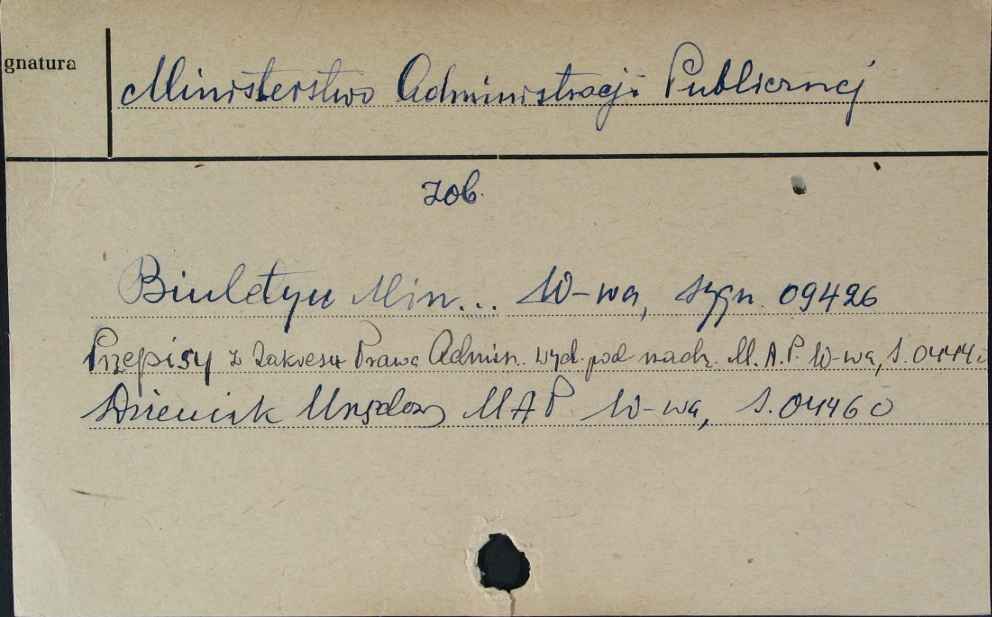 gnatura
Ministerstwo Administracji Publicznej
zob.
Biuletyn Min... W-wa, sygn. 09426
Przepisy z zakresu Prawa Admin. wyd. pod nadz. M.A.P. W-wa, S.
Dziennik Urzędowy MAP W-wa, S.04460